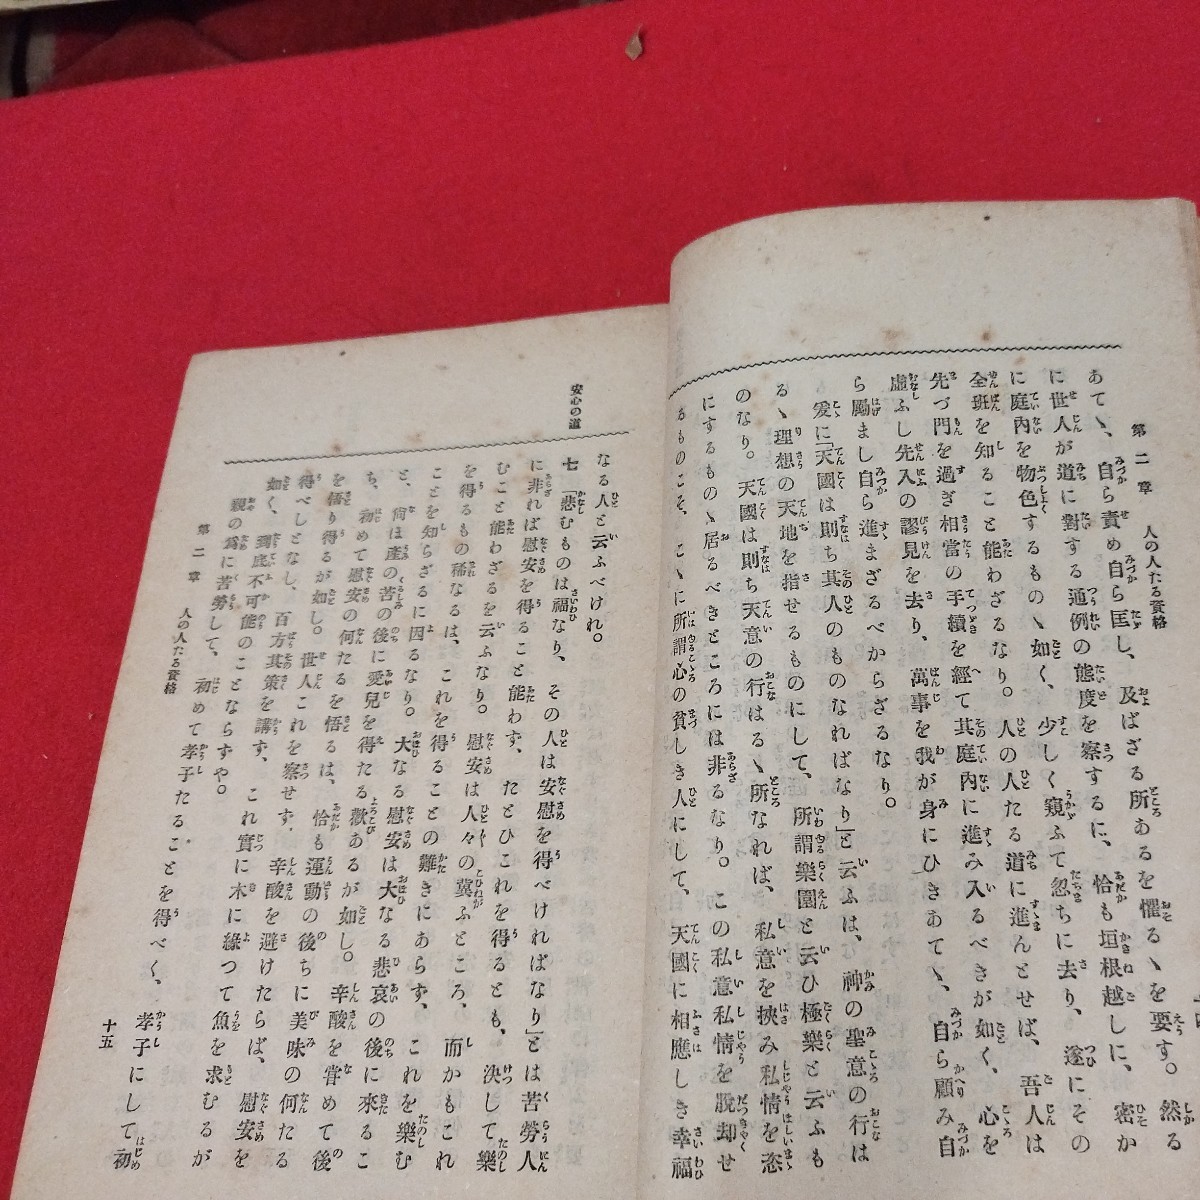 第二章　人の人たる資格
あてゝ、自ら責め自ら匡し、及ばざる所あるを懼るゝを要す。然る
に世人が道に對する通例の態度を察するに、恰も垣根越しに、密か
に庭内を物色するものゝ如く、少しく窺ふて忽ちに去り、遂にその
全班を知ること能わざるなり。人の人たる道に進んとせば、吾人は
先づ門を過ぎ相當の手續を經て其庭内に進み入るべきが如く、心を
虚ふし先入の謬見を去り、萬事を我が身にひきあてゝ、自ら顧み自
ら勵まし自ら進まざるべからざるなり。
爰に「天國は則ち其人のものなればなり」と云ふは、神の聖意の行は
るゝ理想の天地を指せるものにして、所謂樂園と云ひ極樂と云ふも
のなり。天國は則ち天意の行はるゝ所なれば、私意を挾み私情を恣
にするものゝ居るべきところには非るなり。この私意私情を脱却せ
るものこそ、こゝに所謂心の貧しき人にして、天國に相應しき幸福
安心の道
なる人と云ふべけれ。
七「悲むものは福なり、その人は安慰を得べければなり」とは苦勞人
に非れば慰安を得ること能わず、たとひこれを得るとも、決して樂
むこと能わざるを云ふなり。慰安は人々の冀ふところ、而かもこれ
を得るもの稀なるは、これを得ることの難きにあらず、これを樂む
ことを知らざるに因るなり。大なる慰安は大なる悲哀の後に來るこ
と、尚ほ産の苦の後に愛兒を得たる歡あるが如し。辛酸を甞めて後
ち、初めて慰安の何たるを悟るは、恰も運動の後ちに美味の何たる
を悟り得るが如し。世人これを察せず、辛酸を避けたらば、慰安を
得べしとなし、百方其策を講ず、これ實に木に緣つて魚を求むるが
如く、到底不可能のことならずや。
親の爲に苦勞して、初めて孝子たることを得べく、孝子にして初
第二章　人の人たる資格
十五